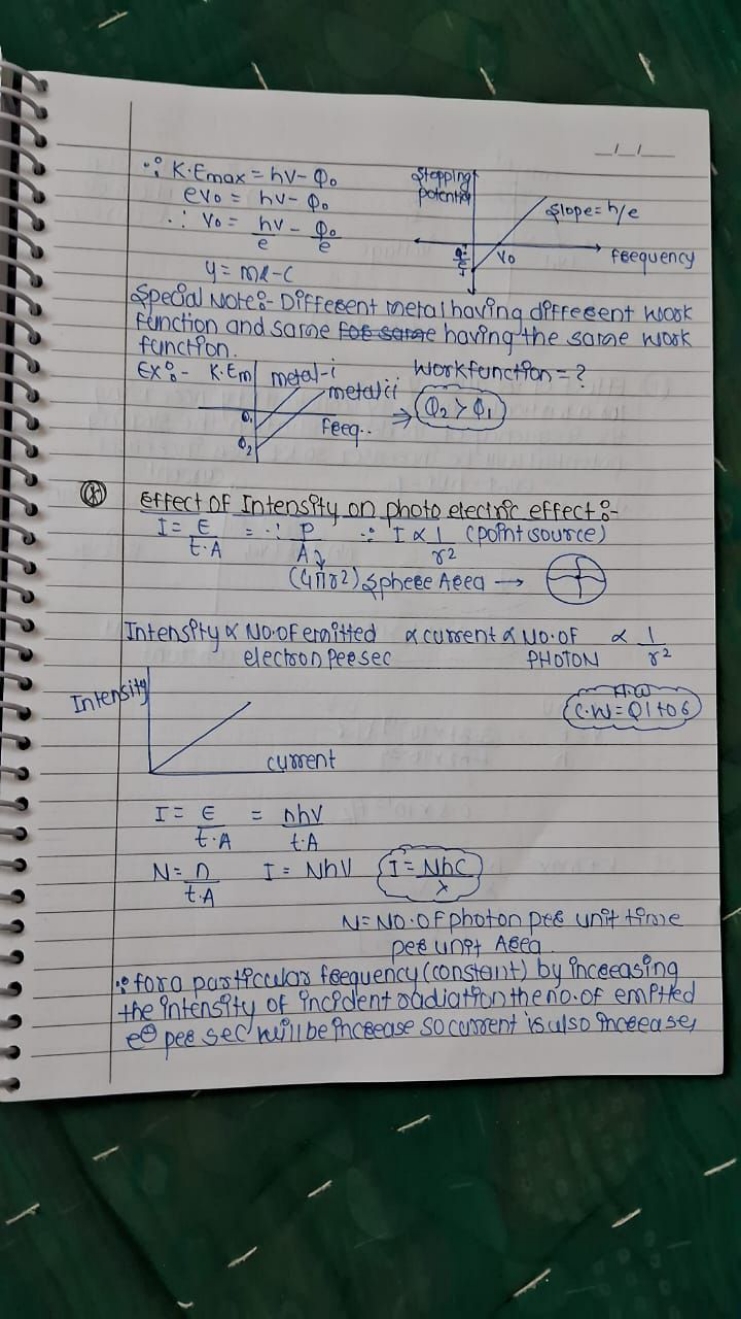 _/_/_
∵ K.Emax = hν - Φ₀
eV₀ = hν - Φ₀
∴ V₀ = hν/e - Φ₀/e
y = mx - C
Stopping
potential
slope = h/e
ν₀
Φ₀/e
feequency
Special Note:- Different metal having different work
function and same for same having the same work
function.
Ex:- K.Em metal-i workfunction = ?
metal ii
Φ₁ Feeq.. → Φ₂ > Φ₁
Φ₂
Effect OF Intensity on photo electric effect:-
I = E/t.A = ∴ P/A ∵ I ∝ 1/r² (point source)
(4πr²) spheee Aeea →
Intensity ∝ No.OF emitted ∝ current ∝ No.OF ∝ 1/r²
electron pee sec PHOTON
Intensity
H.W
C.W = Q1 to 6
current
I = E/t.A = nhν/t.A
N = n/t.A I = Nhν I = Nhc/λ
N = NO.OF photon pee unit time
pee unit Aeea
∵ for a particular feequency (constant) by inceeasing
the intensity of incident radiation the no. of emitted
e⊖ pee sec will be inceease so current is also inceease,